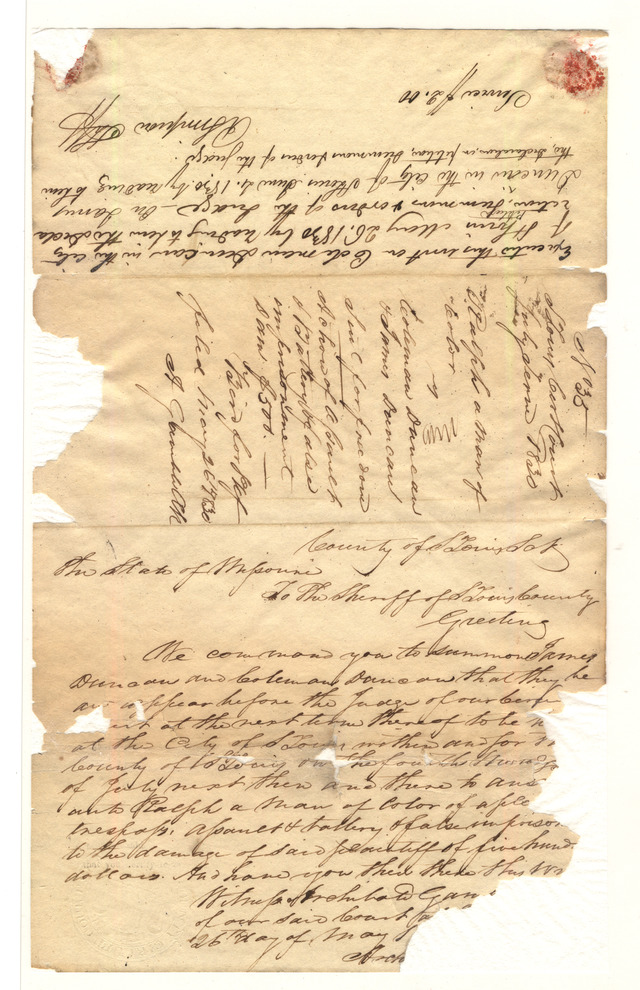 Executed this writ on Coleman Duncan in the city
of St Louis May 26. 1830 by reading to him the decla
ration, petition Summons & orders of the Judge - On James
Duncan in the city of St Louis June 4, 1830. by reading to him
the declaration, petition, Summons & orders of the Judge.
R Simpson Shff
Service $2.00
No 35
St Louis Cirt Court
July Term 1830
Ralph a man of
Color
vs
Coleman Duncan
& James Duncan
Suit for freedom
Assault
& Battery & false
imprisonment
Dam. $500.
Bird for Plff
filed May 26 1830
A Gamble Clk
County of St Louis Sct
The State of Missouri
To The Sheriff of St Louis County
Greeting
We command you to summon James
Duncan and Coleman Duncan that they be
and appear before the Judge of our Circu
at the next term thereof to be h
at the City of St Louis within and for
County of St Louis on the fourth Monday
of July next then and there to ans
unto Ralph a Man of Color of a ple
trespass, assault & battery & false imprison
to the damage of said plaintiff of five hund
dollars. And have you then there this wr
Witness Archibald Gam
of our said Court
26th day of May
Arch